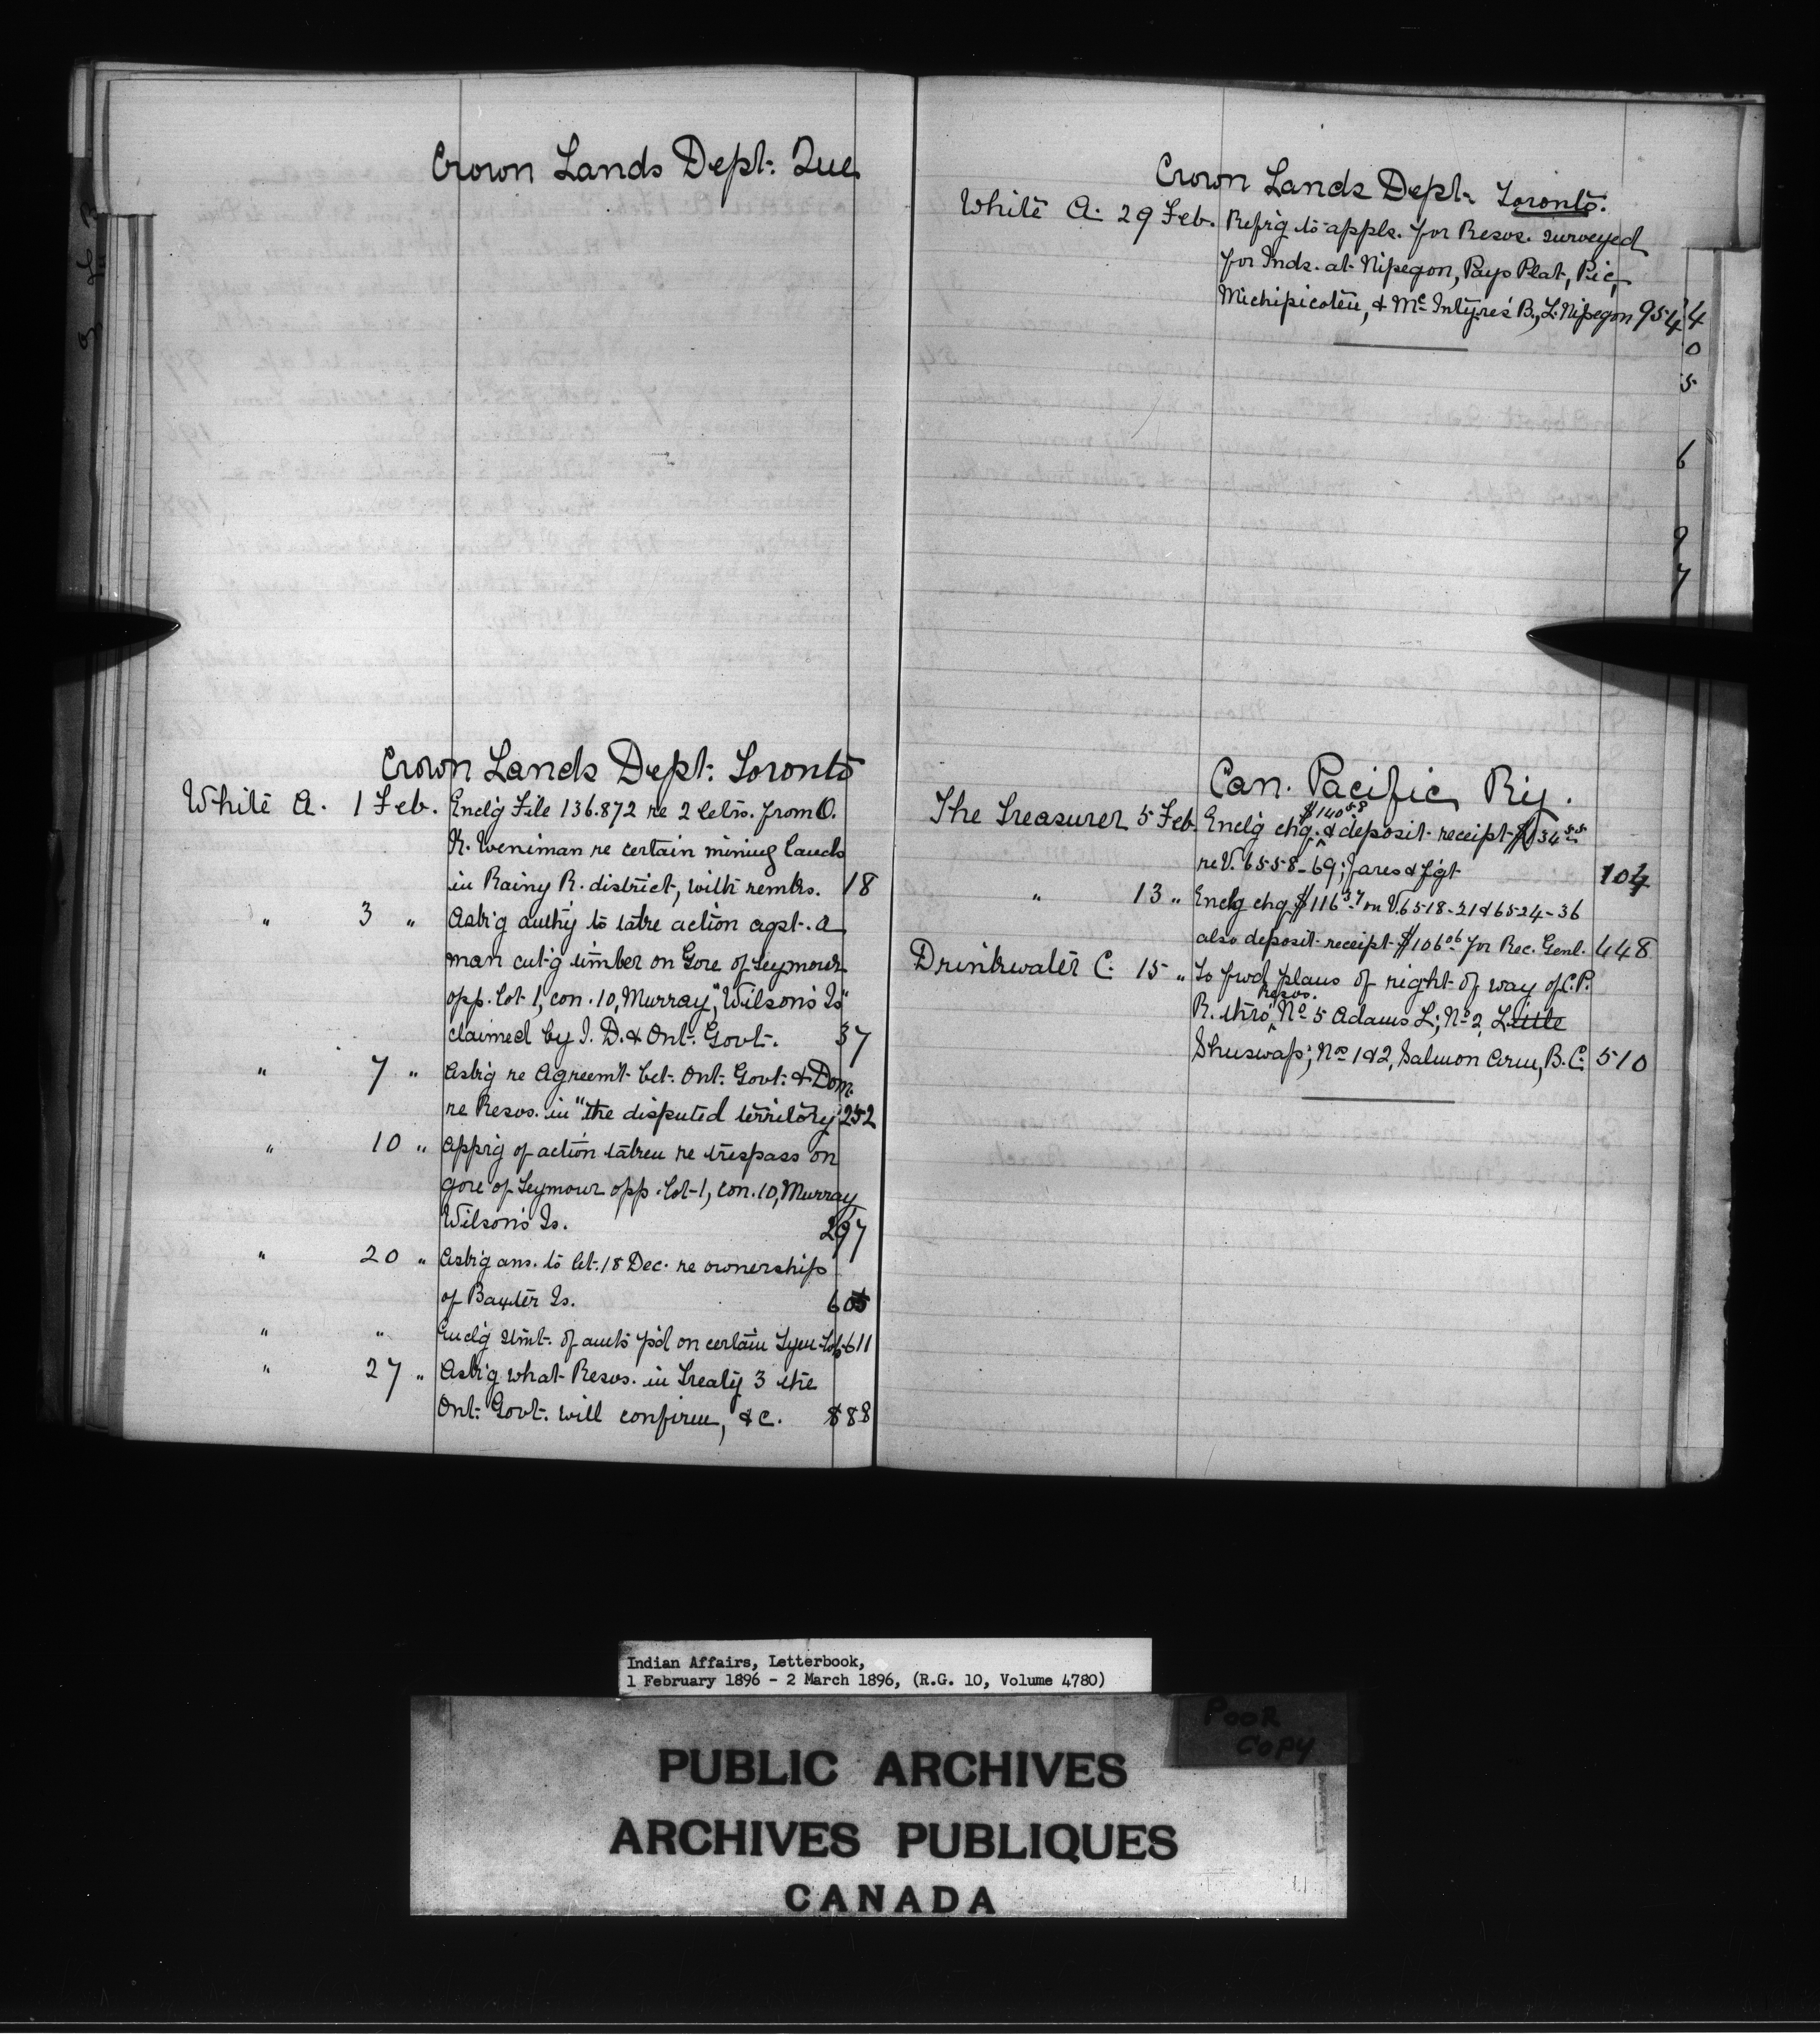 Crown Lands Dept. Que.
Crown Lands Dept. Toronto
White A. 1 Feb. Enclg File 136.872 re 2 letrs. from O.
K. Weniman re certain mining lands
in Rainy R. district, with remks. 18
" 3 " Askg authy to take action agst. a
man cutg timber on Gore of Seymour
opp. lot 1, con. 10, Murray, "Wilson's Is"
claimed by I. D. & Ont. Govt. 37
" 7 " Askg re Agreemt bet. Ont. Govt. & Dom.
re Resvs. in "the disputed territory" 252
" 10 " Apprg of action taken re trespass on
gore of Seymour opp. lot 1, con. 10, Murray
Wilson's Is. 297
" 20 " Askg ans. to let. 18 Dec. re ownership
of Baxter Is. 605
" " Enclg stmt. of amts pd on certain Lots 611
" 27 " Askg what Resvs. in Treaty 3 the
Ont. Govt. will confirm, &c. 888
Crown Lands Dept. Toronto.
White A. 29 Feb. Refrg to appls. for Resvs. surveyed
for Inds. at Nipegon, Pays Plat, Pic,
Michipicoten, & McIntyre's B., L. Nipegon 954
4
0
5
6
9
7
Can. Pacific Ry.
The Treasurer 5 Feb. Enclg chq. $140 58 & deposit receipt $134 55
re V. 6558-69; fares & fgt 104
" 13 " Enclg chq $116 37 on V. 6518-21 & 6524-36
also deposit receipt $106 06 for Rec. Genl. 448
Drinkwater C. 15 " To fwd plans of right of way of C.P.
R. thro' Resvs. No 5 Adams L; No 2, Little
Shuswap; Nos 1 & 2, Salmon Arm, B.C. 510
Indian Affairs, Letterbook,
1 February 1896 - 2 March 1896, (R.G. 10, Volume 4780)
POOR
COPY
PUBLIC ARCHIVES
ARCHIVES PUBLIQUES
CANADA